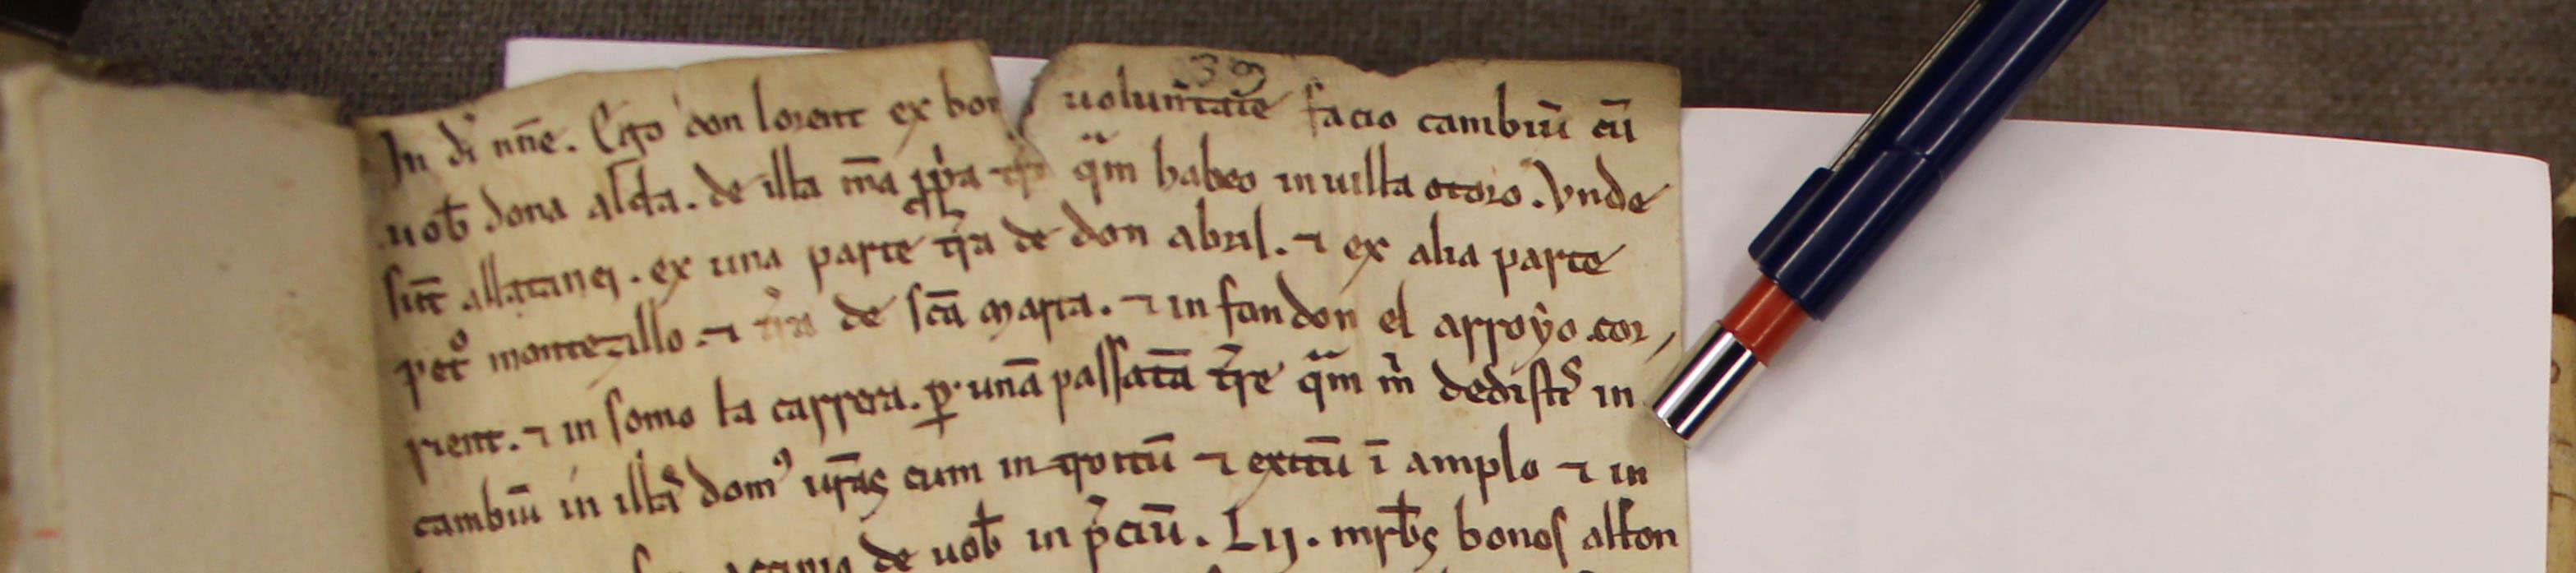 39
In di nn̄e. Ego don lorent ex bon uolun̄tate facio cambiū cū
uob̄ dona alda. de illa m̄a ꝓpa tr̄a q̄m habeo in uilla otoro. Vnde
sūt allatanei. ex una parte tr̄a de don abril. ⁊ ex alia parte
petᵒ montezillo ⁊ tr̄ra de sc̄a maria. ⁊ in fondon el arroẏo cor,
rient. ⁊ in somo la carrera. ꝑ unā passatā tr̄re q̄m m̄ dedistis in
cambiū in illas domꝰ ur̄as cum introitū ⁊ exitū ī amplo ⁊ in
de uob̄ in p̄ciū. Lij. mrb̄s bonos alfon